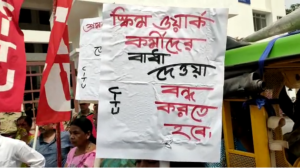 স্কিম ওয়ার্ক
কর্মীদের
বাধা
দেওয়া
বন্ধ
করতে
হবে।
CITU
CITU